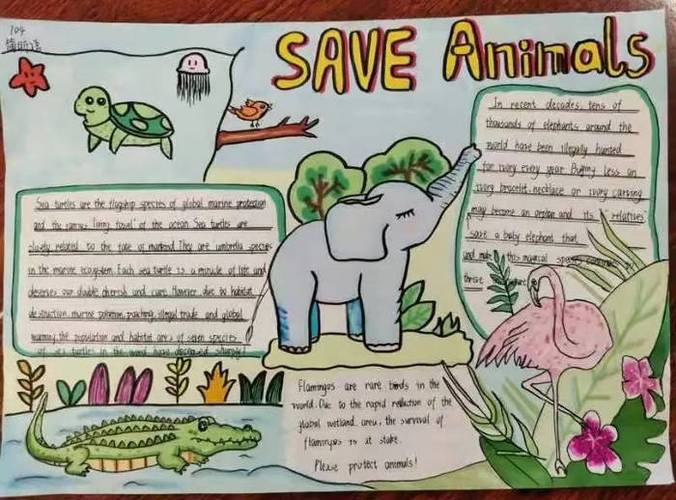 104
SAVE Animals
Sea turtles are the flagship species of global marine protection
and the famous "living fossil" of the ocean Sea turtles are
closely related to the fate of mankind They are umbrella species
in the marine ecosystem. Each sea turtle is a miracle of life and
deserves our double cherish and care. However, due to habitat
destruction, marine pollution, poaching, illegal trade and global
warming, the population and habitat area of seven species
of sea turtles in the world have decreased sharply!
In recent decades, tens of
thousands of elephants around the
world have been illegally hunted
for ivory every year. Buying less an
ivory bracelet, necklace or ivory carving
may become an orphan and its "relatives"
save a baby elephant that
and make this magical species
thrive
Flamingos are rare birds in the
world. Due to the rapid reduction of the
global wetland area, the survival of
flamingos is at stake.
Please protect animals!